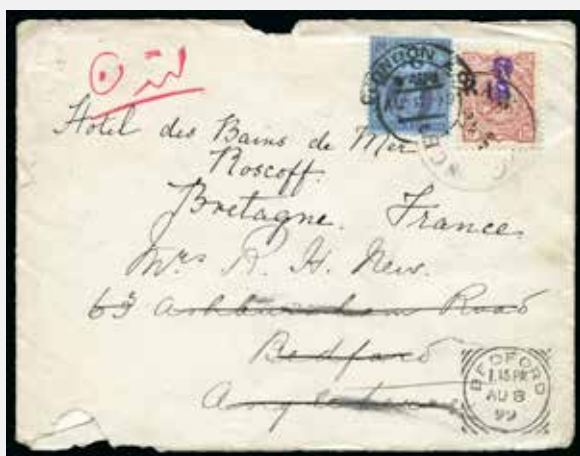 لندن
LONDON
Hotel des Bains de Mer
Roscoff.
Bretagne. France
Mrs R. H. New.
63 Ashburnham Road
Bedford
Angleterre
BEDFORD
1.15 PM
AU 8
99